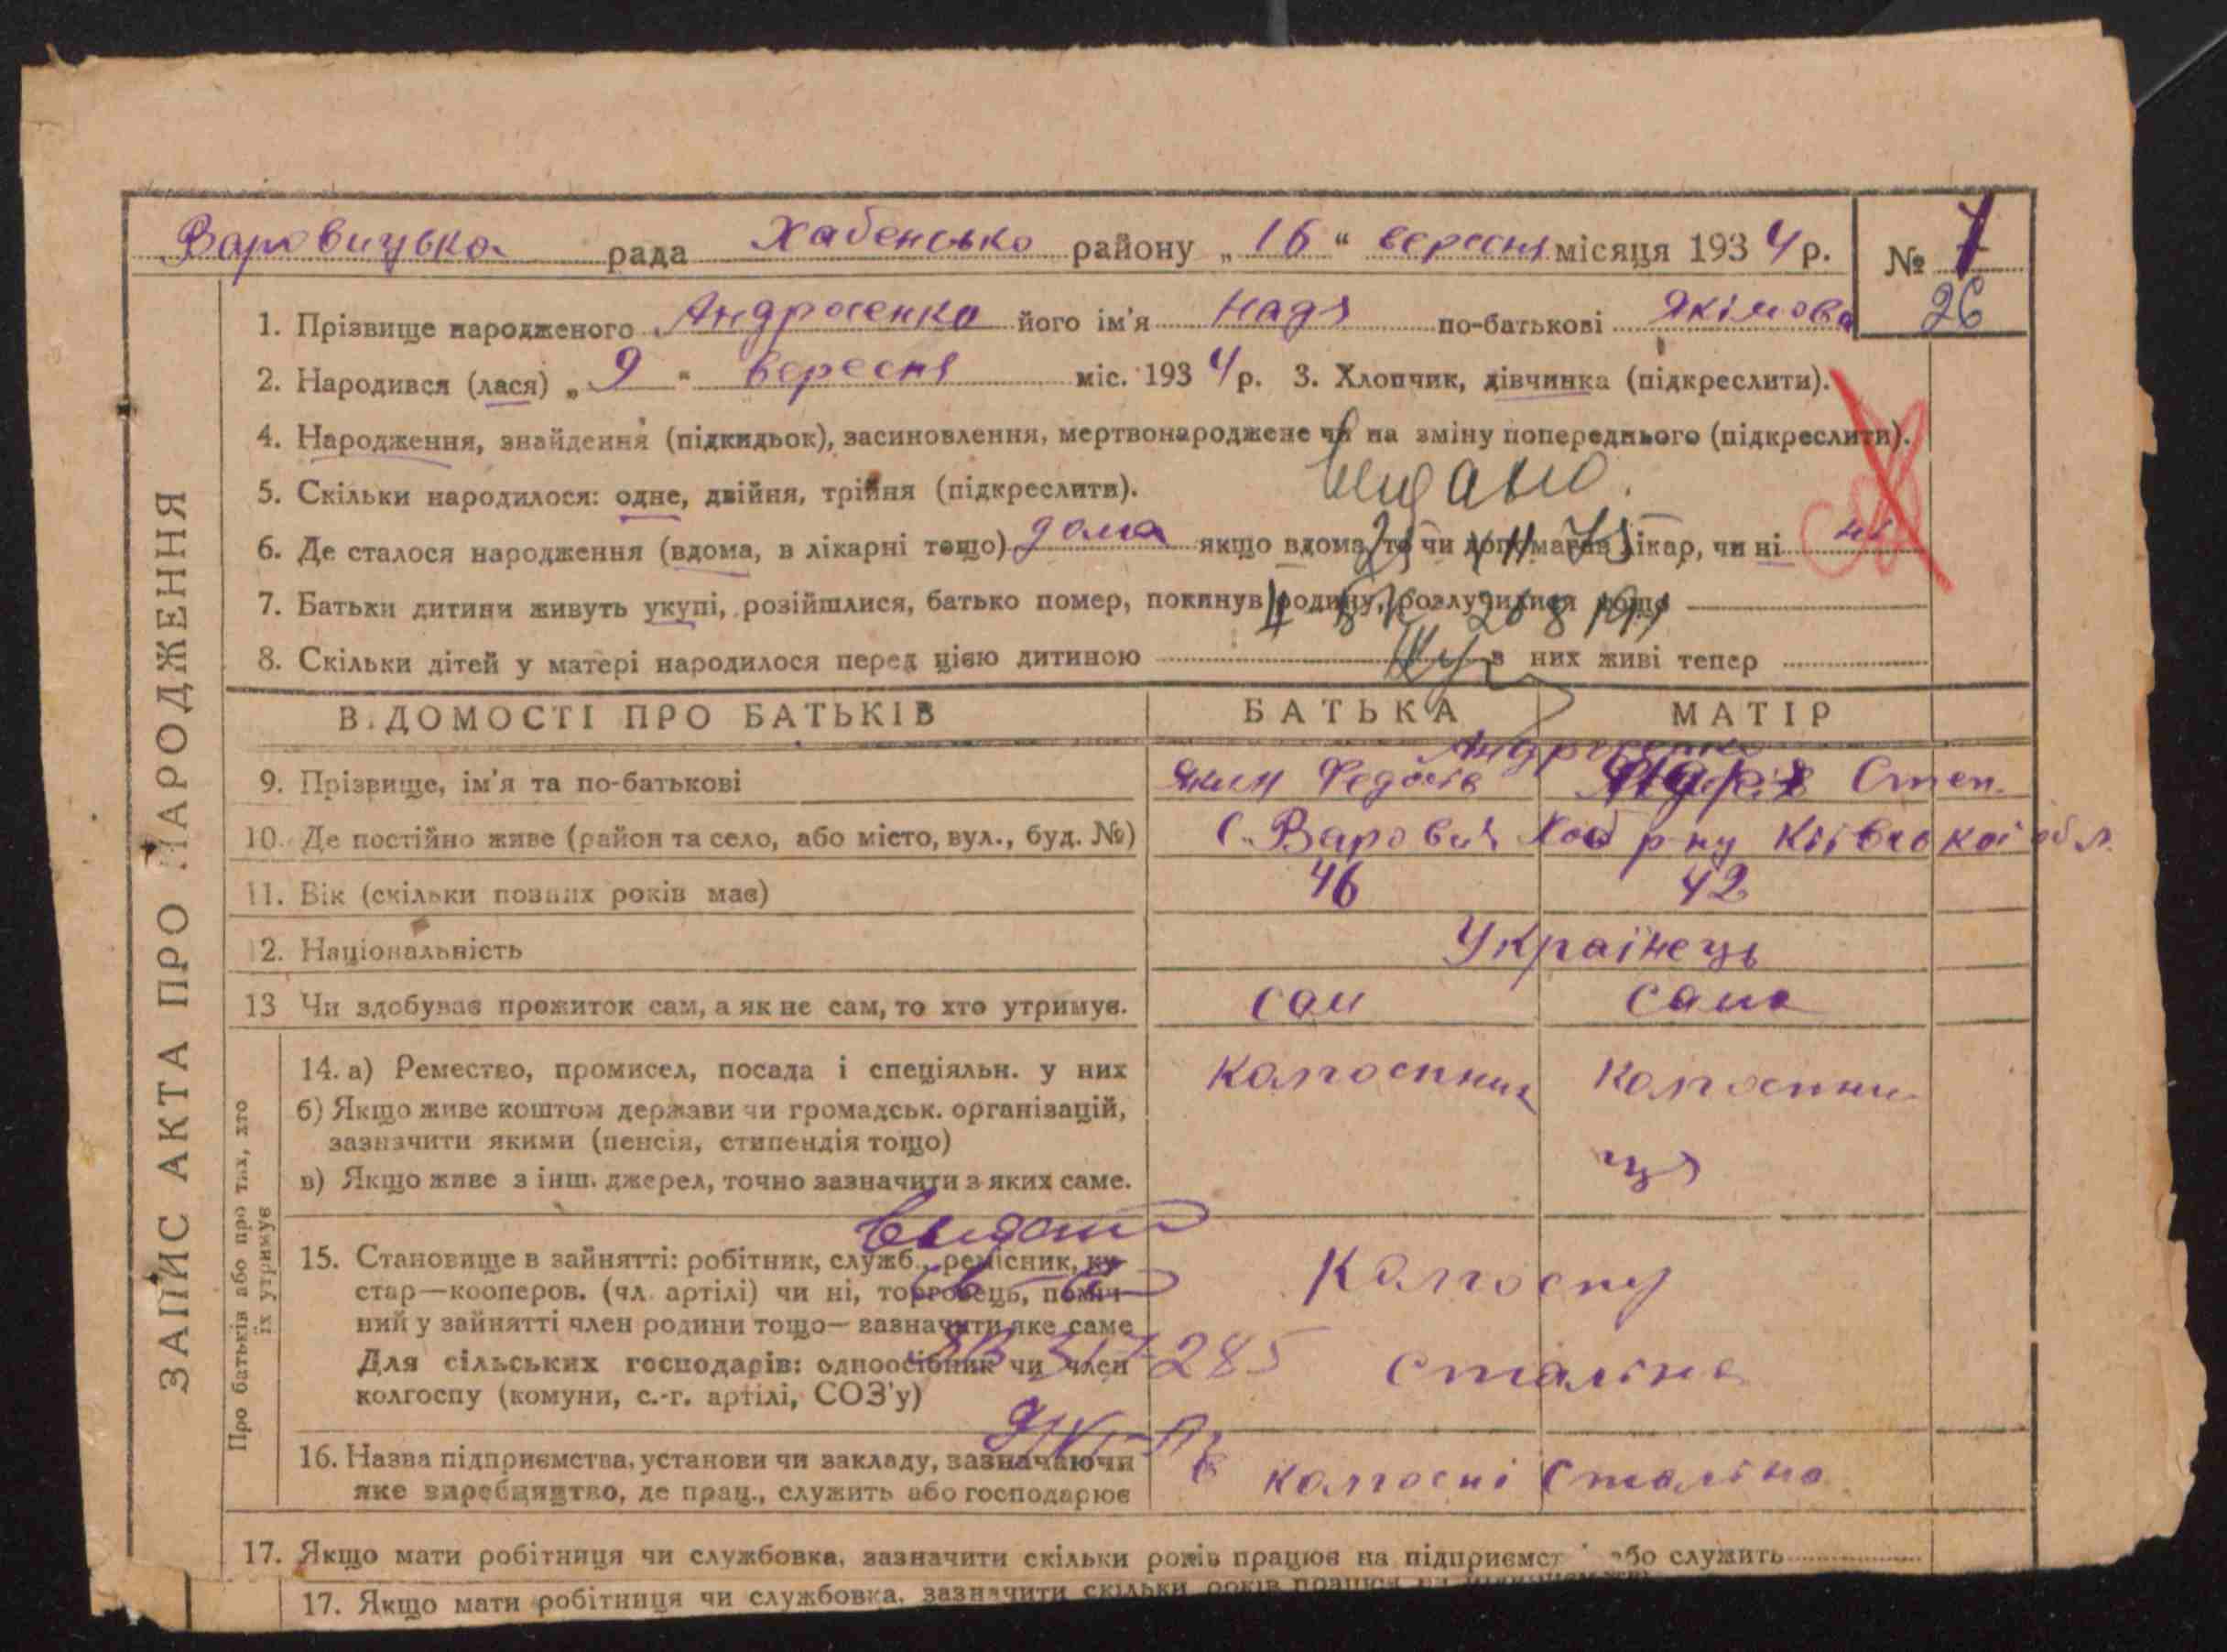 Варовицька рада Хабенсько району „ 16 “ вересня місяця 193 4 р. № 7
26
1. Прізвище народженого Андросенко його ім'я Надя по-батькові Якімова
2. Народився (лася) „ 9 “ вересня міс. 193 4 р. 3. Хлопчик, дівчинка (підкреслити).
4. Народження, знайдення (підкидьок), засиновлення, мертвонароджене чи на зміну попереднього (підкреслити).
видано.
5. Скільки народилося: одне, двійня, трійня (підкреслити).
6. Де сталося народження (вдома, в лікарні тощо) дома якщо вдома, то чи допомагав лікар, чи ні ні
7. Батьки дитини живуть укупі, розійшлися, батько помер, покинув родину, розлучилися тощо
8. Скільки дітей у матері народилося перед цією дитиною з них живі тепер
ВІДОМОСТІ ПРО БАТЬКІВ БАТЬКА МАТІР
Андросенко
9. Прізвище, ім'я та по-батькові Яким Федосів Степ.
10. Де постійно живе (район та село, або місто, вул., буд. №) с. Варовичі Хаб р-ну Київської обл.
11. Вік (скільки повних років має) 46 42
12. Національність Українець
13 Чи здобуває прожиток сам, а як не сам, то хто утримує. сам сама
14. а) Ремество, промисел, посада і спеціяльн. у них колгоспник колгоспни
б) Якщо живе коштом держави чи громадськ. організацій,
зазначити якими (пенсія, стипендія тощо)
ця
в) Якщо живе з інш. джерел, точно зазначити з яких саме.
15. Становище в зайнятті: робітник, служб., ремісник, ку-
стар—кооперов. (чл. артілі) чи ні, торговець, поміч- Колгоспу
ний у зайнятті член родини тощо— зазначити яке саме
Для сільських господарів: одноосібник чи член 285 Сталіна
колгоспу (комуни, с.-г. артілі, СОЗ'у)
16. Назва підприємства, установи чи закладу, зазначаючи
яке виробництво, де прац., служить або господарює в колгоспі Сталіна
17. Якщо мати робітниця чи службовка, зазначити скільки років працює на підприємст або служить
17. Якщо мати робітниця чи службовка, зазначити скільки років працює на
ЗАПИС АКТА ПРО НАРОДЖЕННЯ
Про батьків або про тих, хто
їх утримує